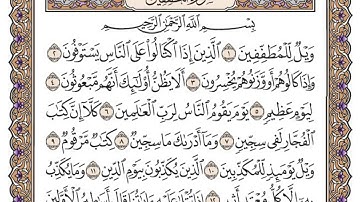 بِسْمِ ٱللَّهِ ٱلرَّحْمَٰنِ ٱلرَّحِيمِ
وَيْلٌ لِّلْمُطَفِّفِينَ ١ ٱلَّذِينَ إِذَا ٱكْتَالُوا۟ عَلَى ٱلنَّاسِ يَسْتَوْفُونَ ٢
وَإِذَا كَالُوهُمْ أَو وَّزَنُوهُمْ يُخْسِرُونَ ٣ أَلَا يَظُنُّ أُو۟لَٰٓئِكَ أَنَّهُم مَّبْعُوثُونَ ٤
لِيَوْمٍ عَظِيمٍ ٥ يَوْمَ يَقُومُ ٱلنَّاسُ لِرَبِّ ٱلْعَٰلَمِينَ ٦ كَلَّآ إِنَّ كِتَٰبَ
ٱلْفُجَّارِ لَفِى سِجِّينٍ ٧ وَمَآ أَدْرَىٰكَ مَا سِجِّينٌ ٨ كِتَٰبٌ مَّرْقُومٌ ٩
وَيْلٌ يَوْمَئِذٍ لِّلْمُكَذِّبِينَ ١٠ ٱلَّذِينَ يُكَذِّبُونَ بِيَوْمِ ٱلدِّينِ ١١ وَمَا يُكَذِّبُ
بِهِۦٓ إِلَّا كُلُّ مُعْتَدٍ أَثِيمٍ ١٢ إِذَا تُتْلَىٰ عَلَيْهِ ءَايَٰتُنَا قَالَ أَسَٰطِيرُ ٱلْأَوَّلِينَ